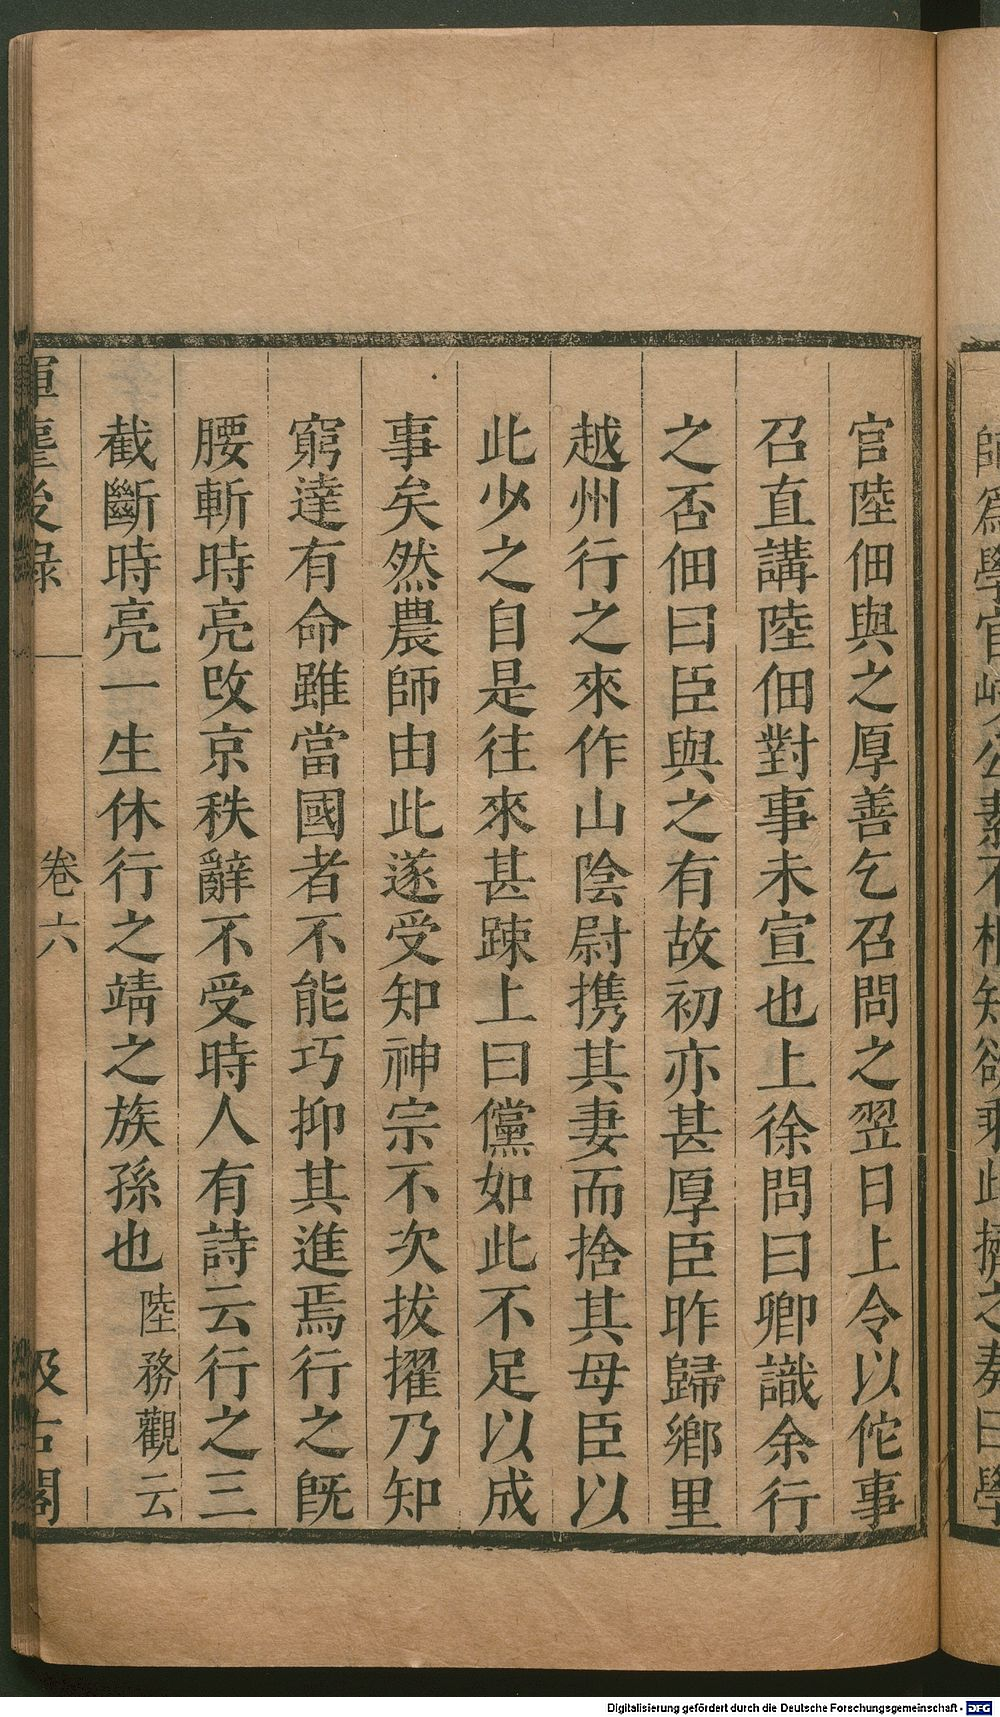 師爲學官
官陸佃與之厚善乞召問之翌日上令以佗事
召直講陸佃對事未宣也上徐問曰卿識余行
之否佃曰臣與之有故初亦甚厚臣昨歸鄉里
越州行之來作山陰尉携其妻而捨其母臣以
此少之自是往來甚踈上曰儻如此不足以成
事矣然農師由此遂受知神宗不次拔擢乃知
窮達有命雖當國者不能巧抑其進焉行之旣
腰斬時亮改京秩辭不受時人有詩云行之三
截斷時亮一生休行之靖之族孫也陸務觀云
揮麈後錄 卷六 汲古閣
Digitalisierung gefördert durch die Deutsche Forschungsgemeinschaft - DFG